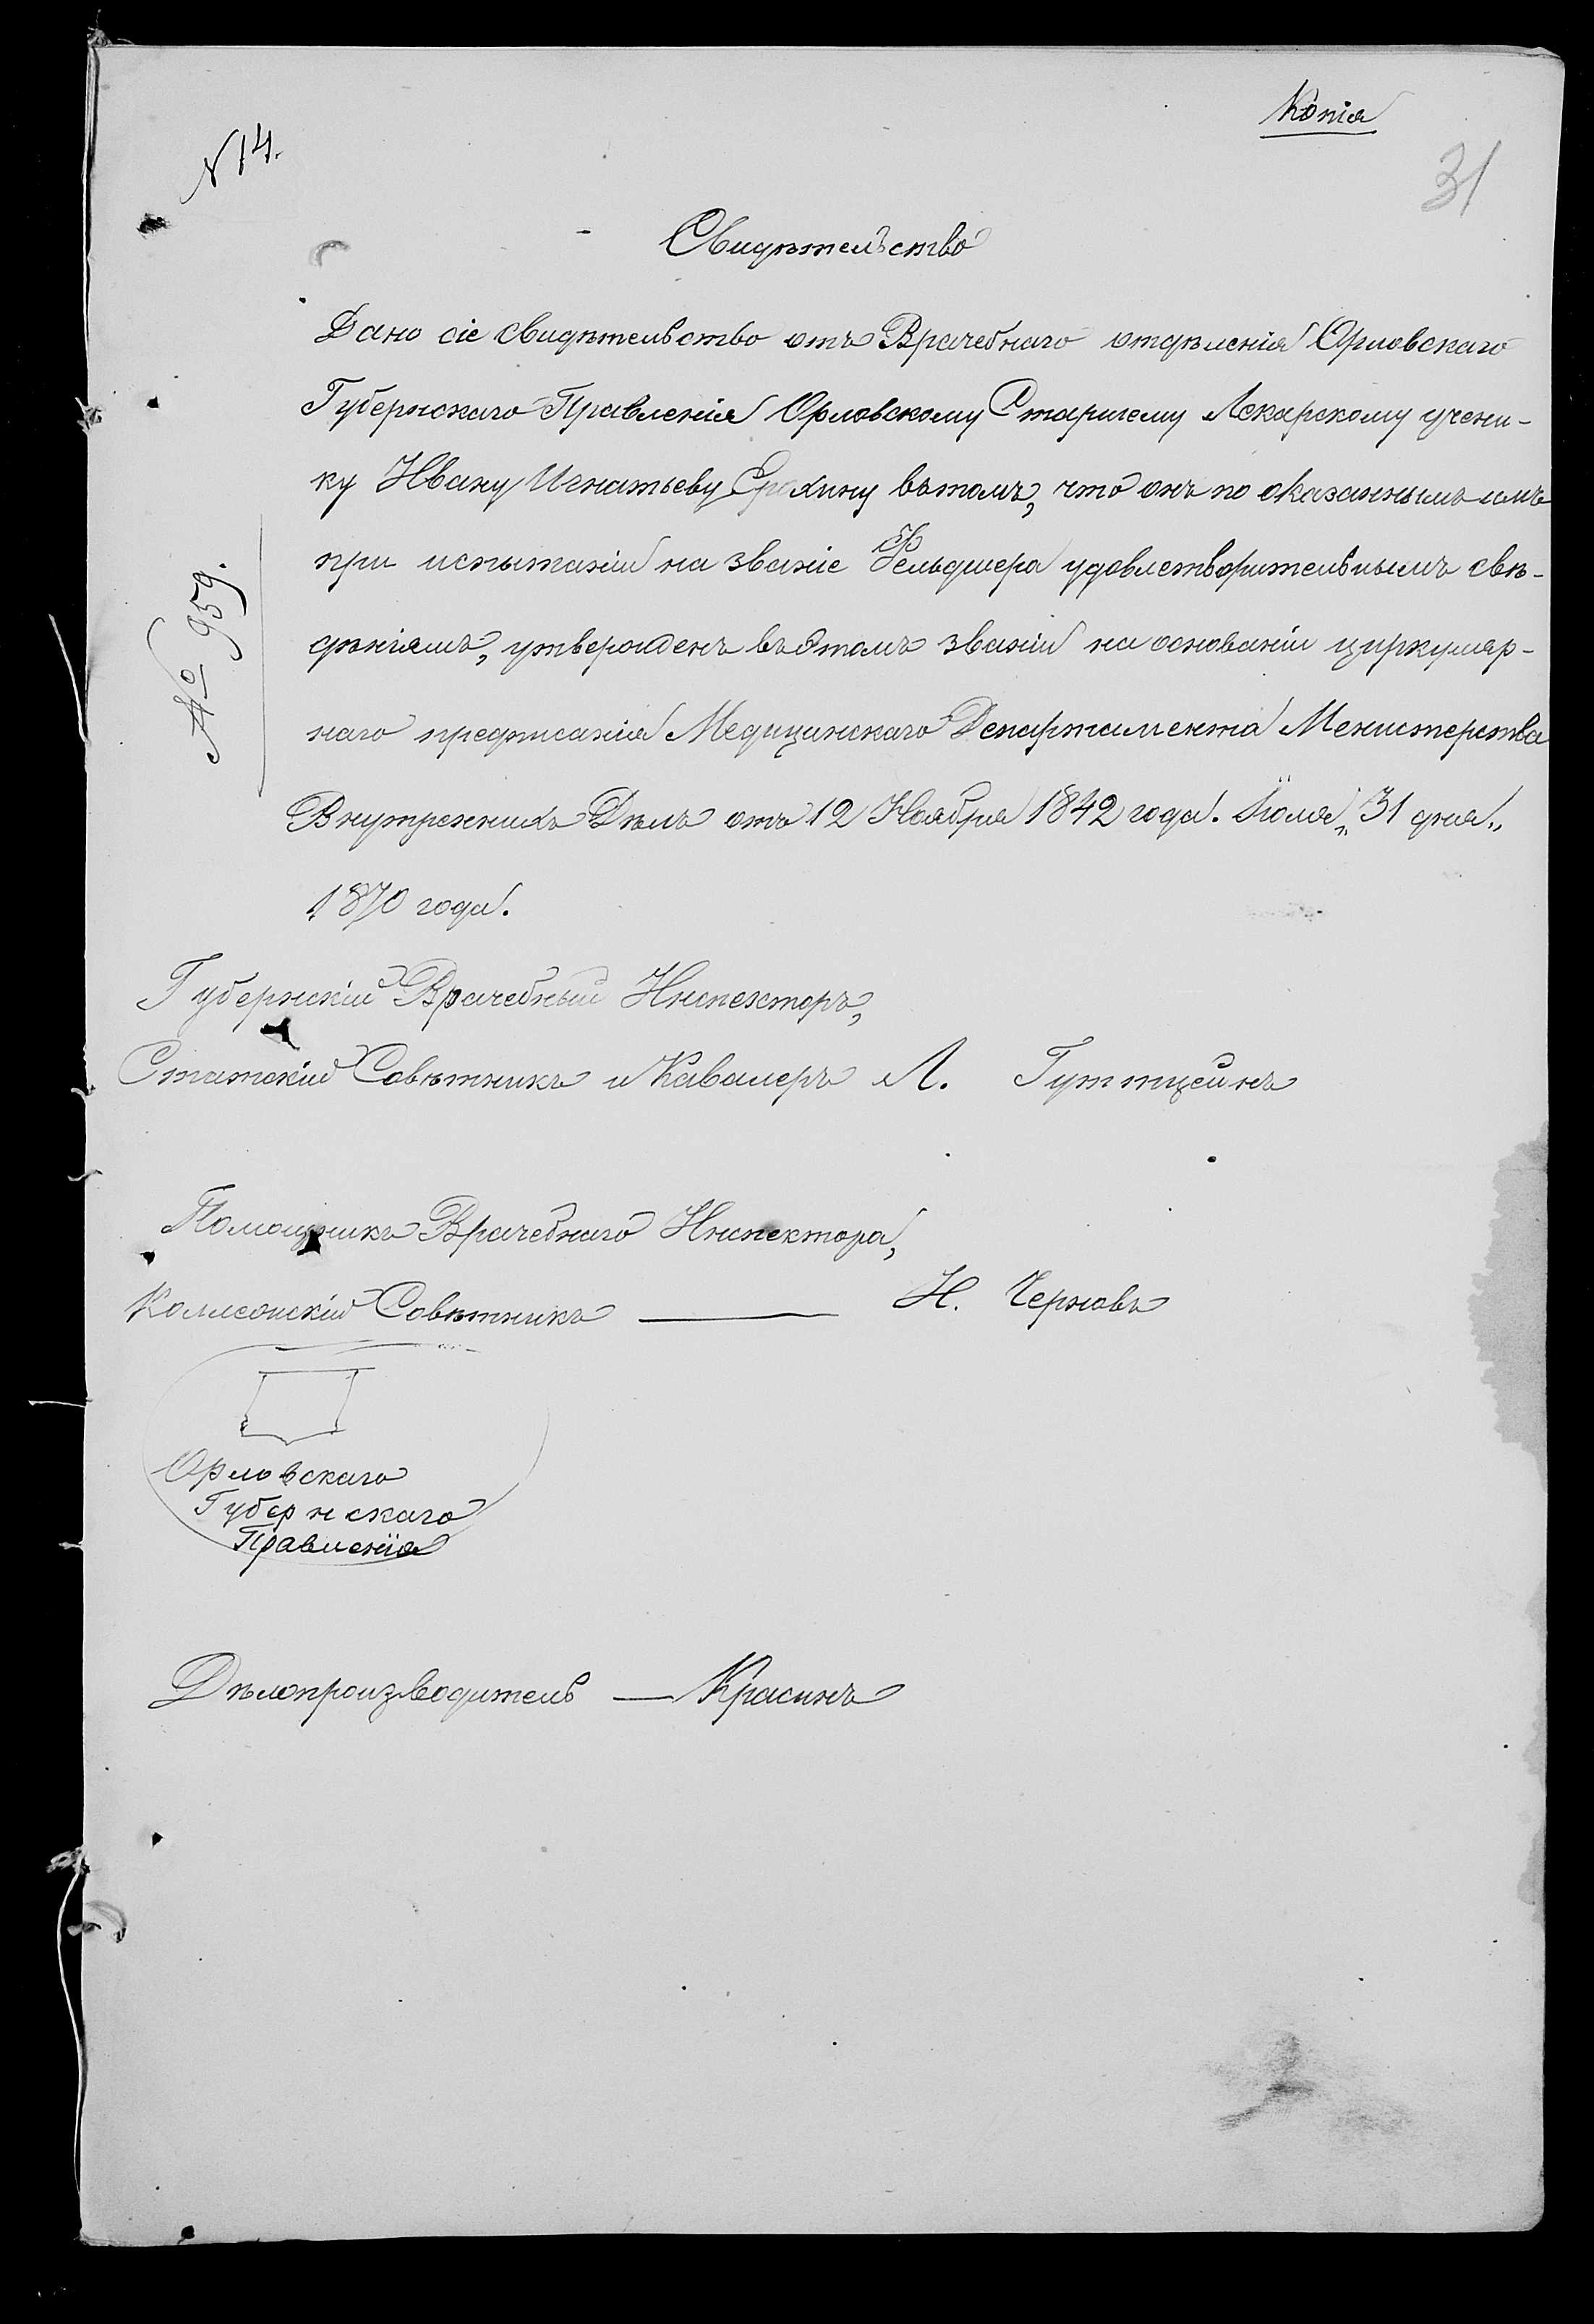 Копія
N 14.
31
Свидѣтельство
Дано сіе свидѣтельство отъ Врачебнаго отдѣленія Орловскаго
Губернскаго Правленія Орловскому Старшему Лекарскому учени-
ку Ивану Игнатьеву Ерохину въ томъ, что онъ по оказаннымъ имъ
при испытаніи на званіе Фельдшера удовлетворительнымъ свѣ-
дѣніямъ, утвержденъ въ этомъ званіи на основаніи циркуляр-
наго предписанія Медицинскаго Департамента Менистерства
Внутреннихъ Дѣлъ отъ 12 Ноября 1842 года. Іюля „31 дня„
1870 года.
№ 959.
Губернскій Врачебный Инспекторъ,
Статскій Совѣтникъ и Кавалеръ Л. Гутцейнъ
Помощникъ Врачебнаго Инспектора,
Коллежскій Совѣтникъ — Н. Черновъ
Орловскаго
Губернскаго
Правленія
Дѣлопроизводитель — Красинъ